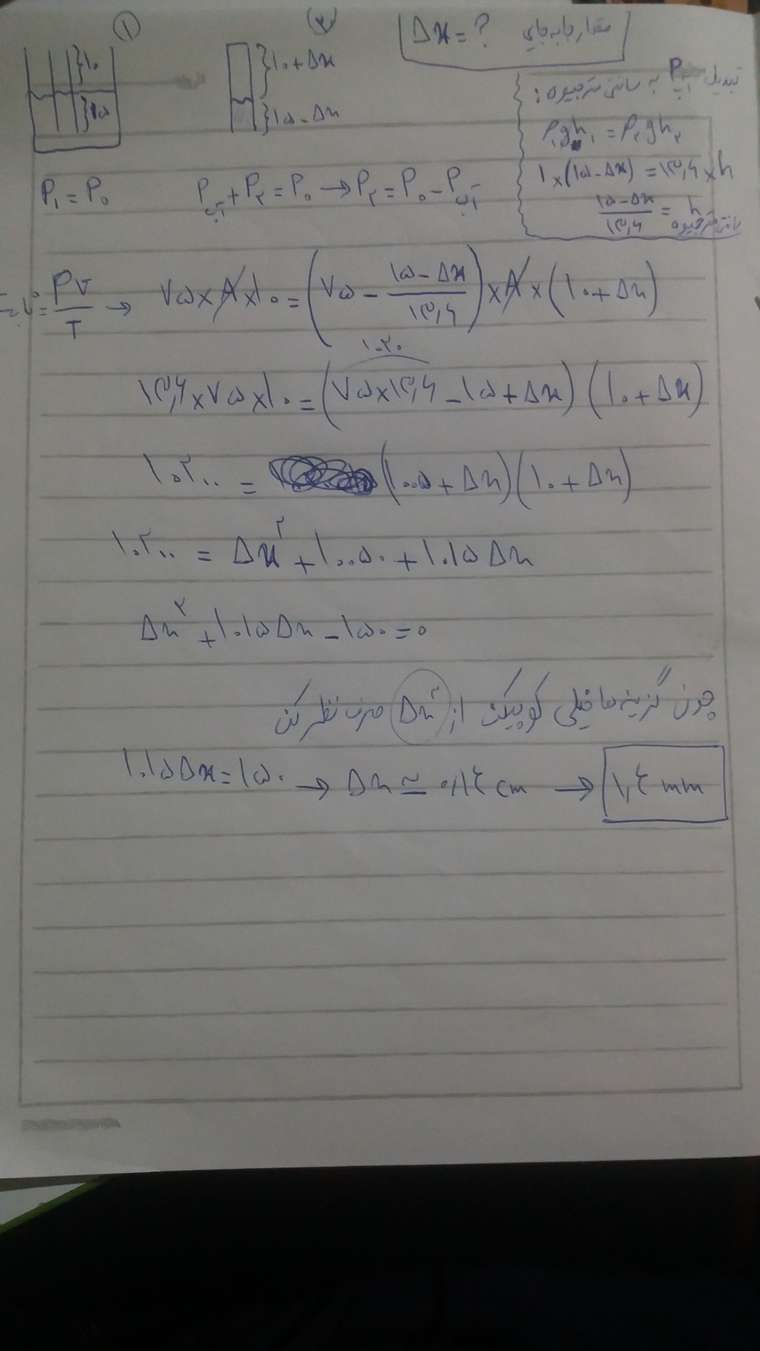 ① ② Δx = ? مقدار جابه‌جایی
}۱۰ }۱۰+Δx
}۱۵ }۱۵-Δx
تبدیل Pآب به سانتی متر جیوه:
ρ₁gh₁ = ρ₂gh₂
۱×(۱۵-Δx) = ۱۳٫۶×h
h = (۱۵-Δx)/۱۳٫۶
سانتی متر جیوه
P₁ = P₀ Pآب + P₂ = P₀ → P₂ = P₀ - Pآب
PV/T → ۷۵×A×۱۰ = (۷۵ - (۱۵-Δx)/۱۳٫۶)×A×(۱۰+Δx)
۱۰۲۰
۱۳٫۶×۷۵×۱۰ = (۷۵×۱۳٫۶-۱۵+Δx)(۱۰+Δx)
۱۰۲۰۰ = (۱۰۰۵+Δx)(۱۰+Δx)
۱۰۲۰۰ = Δx² + ۱۰۰۵۰ + ۱۰۱۵Δx
Δx² + ۱۰۱۵Δx - ۱۵۰ = ۰
چون گزینه ها خیلی کوچیکن از Δx² صرف نظر کن
۱۰۱۵Δx = ۱۵۰ → Δx ≃ ۰٫۱۴ cm → ۱٫۴ mm